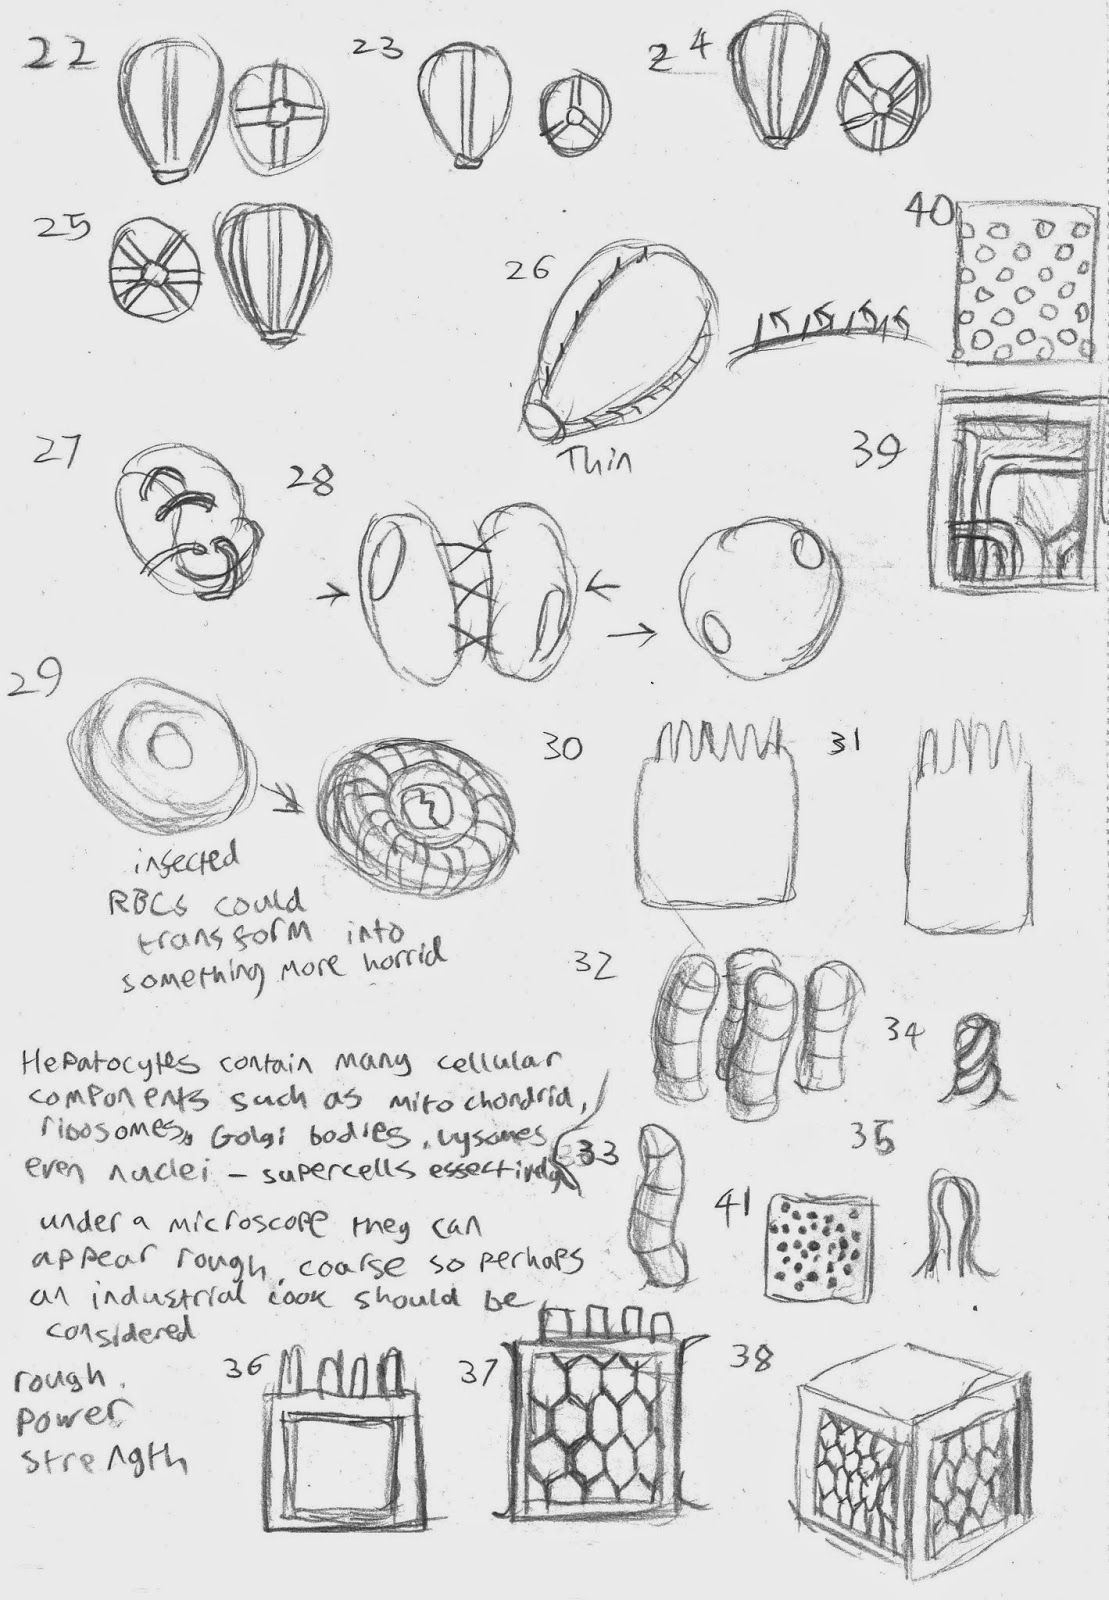 22
23
24
25
26
Thin
40
39
27
28
29
30
31
infected
RBCs could
transform into
something more horrid
32
34
33
35
41
Hepatocytes contain many cellular
components such as mitochondria,
ribosomes, Golgi bodies, lysomes
even nuclei - supercells essectively
under a microscope they can
appear rough, coarse so perhaps
an industrial look should be
considered
rough.
power
strength
36
37
38